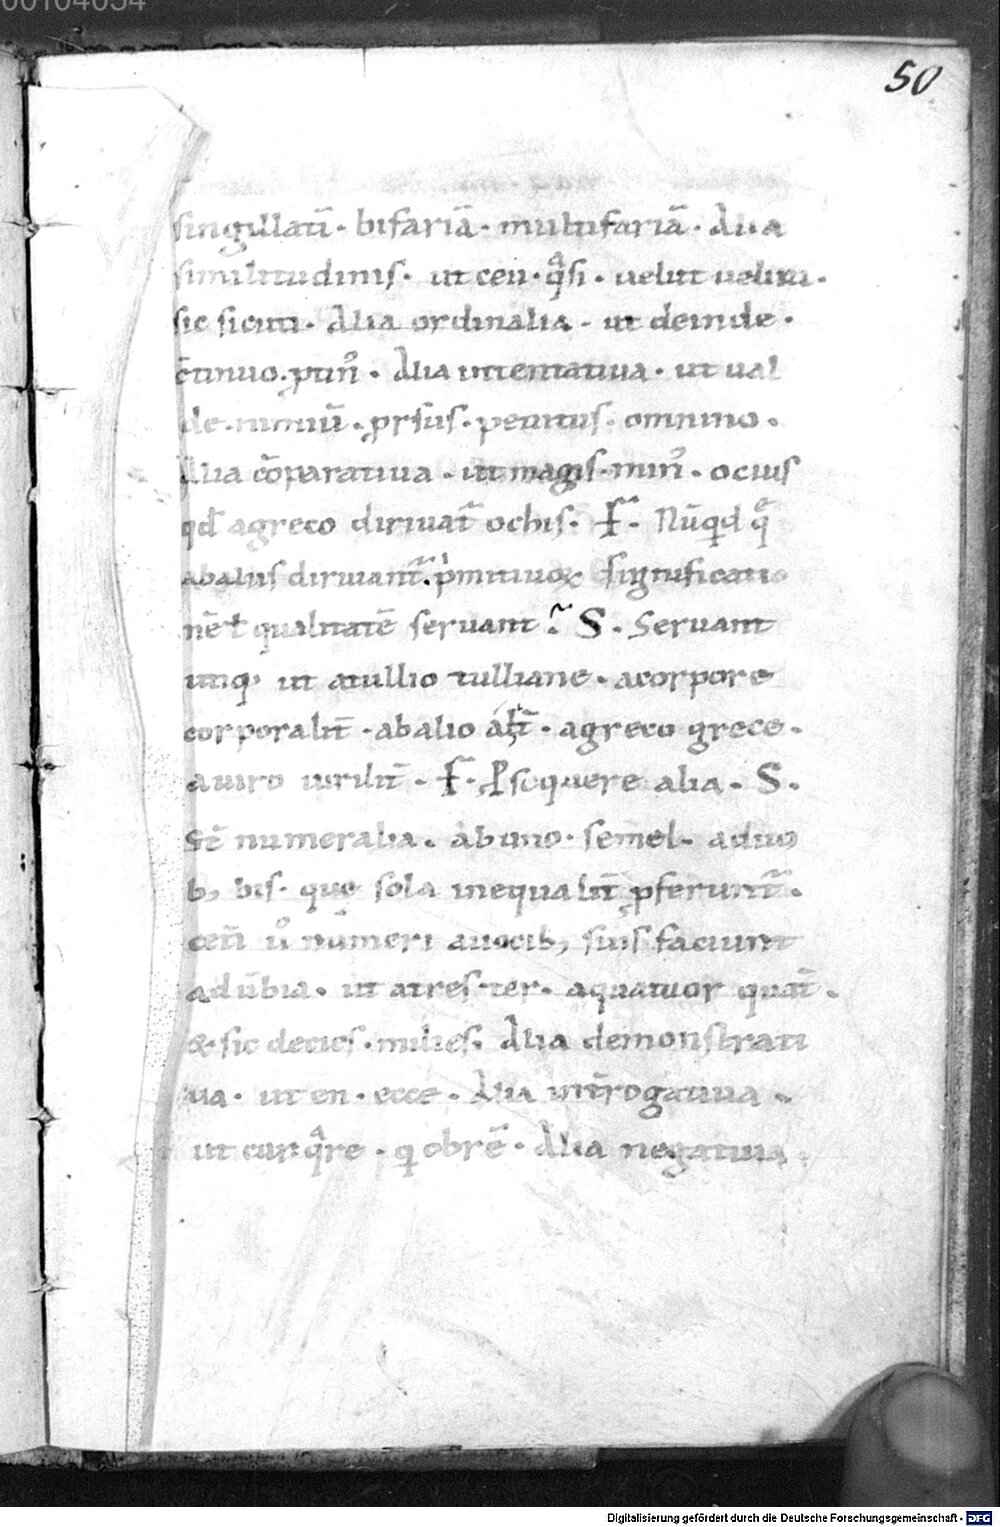 50
singillatī · bifariā · multifariā · Alia
similitudinis · ut ceu · qͣsi · uelut ueluti ·
sic sicuti · Alia ordinalia · ut deinde ·
c̄tinuo · ꝓtin᷒ · Alia intentatiua · ut ual
de · nimiū · ꝓrsus · penitus · omnino ·
Alia cōparatiua · ut magis · min᷒ · ocius
qd̄ agreco diriuat᷑ ochis · F · Nūqd q̄
abaliis diriuant᷑ · pͥmitiuoꝝ significatio
nē ł qualitatē seruant · S · Seruant
utiq; ut atullio tulliane · acorpore
corporalit̄ · abalio alit̄ · agreco grece ·
auiro uirilit̄ · F · Psequere alia · S ·
St̄ numeralia · abuno · semel · aduo
b; bis · quo sola inequalit̄ ꝓferunt᷑ ·
cet̄i uͦ numeri auocib; suis faciunt
adūbia · ut atres · ter · aquatuor quat̄ ·
& sic decies · milies · Alia demonstrati
ua · ut en · ecce · Alia int̄rogatiua ·
ut cur qͣre · q obrē · Alia negatiua ·
Digitalisierung gefördert durch die Deutsche Forschungsgemeinschaft - DFG